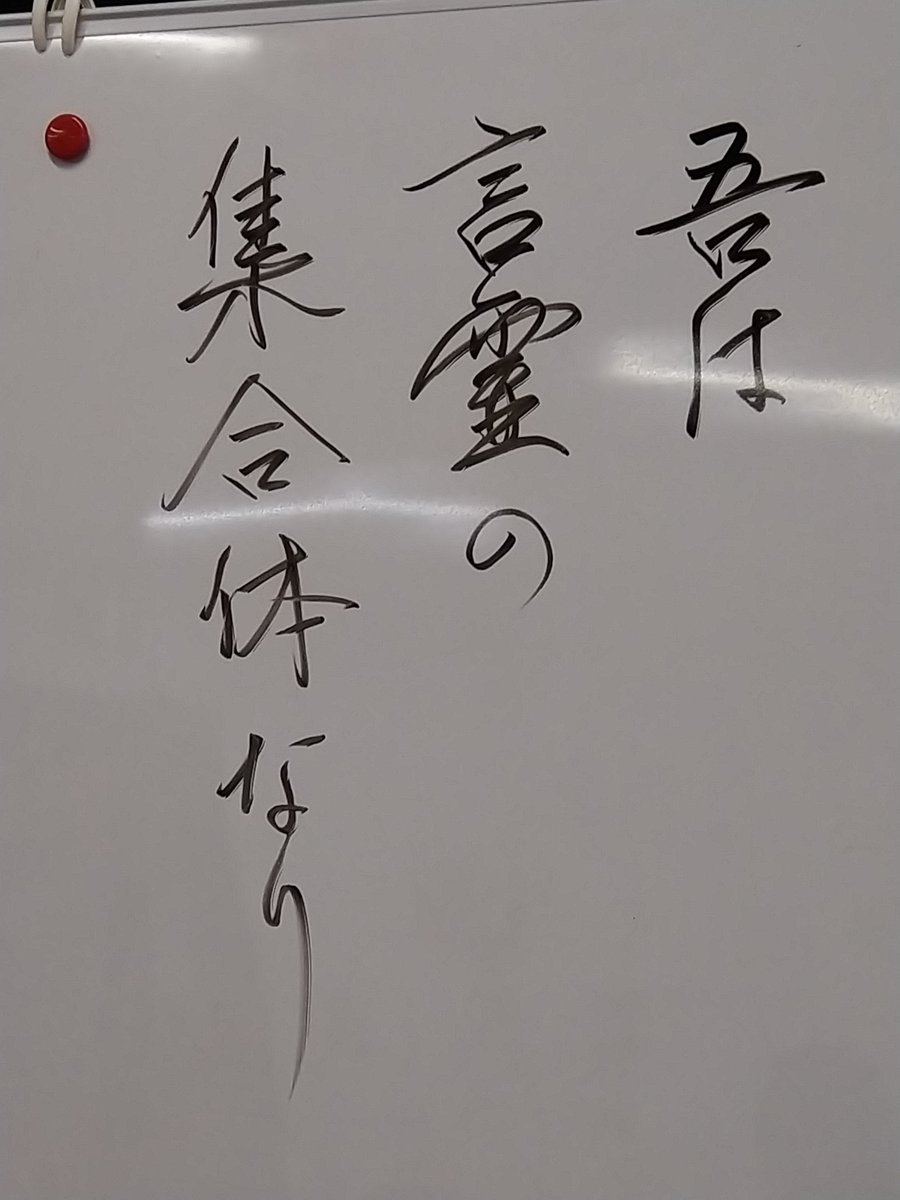 吾は
言霊の
集合体なり